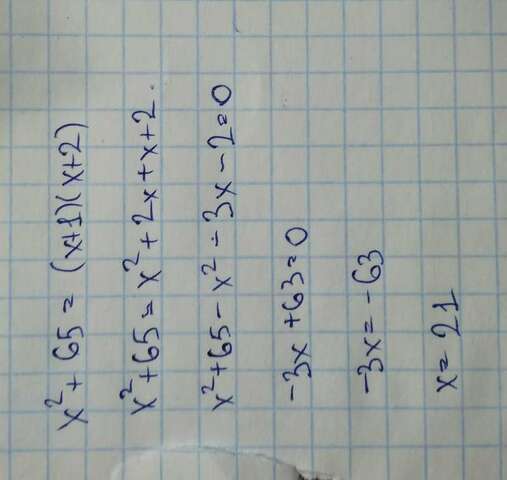 x² + 65 = (x+1)(x+2)
x² + 65 = x² + 2x + x + 2.
x² + 65 - x² - 3x - 2 = 0
-3x + 63 = 0
-3x = -63
x = 21